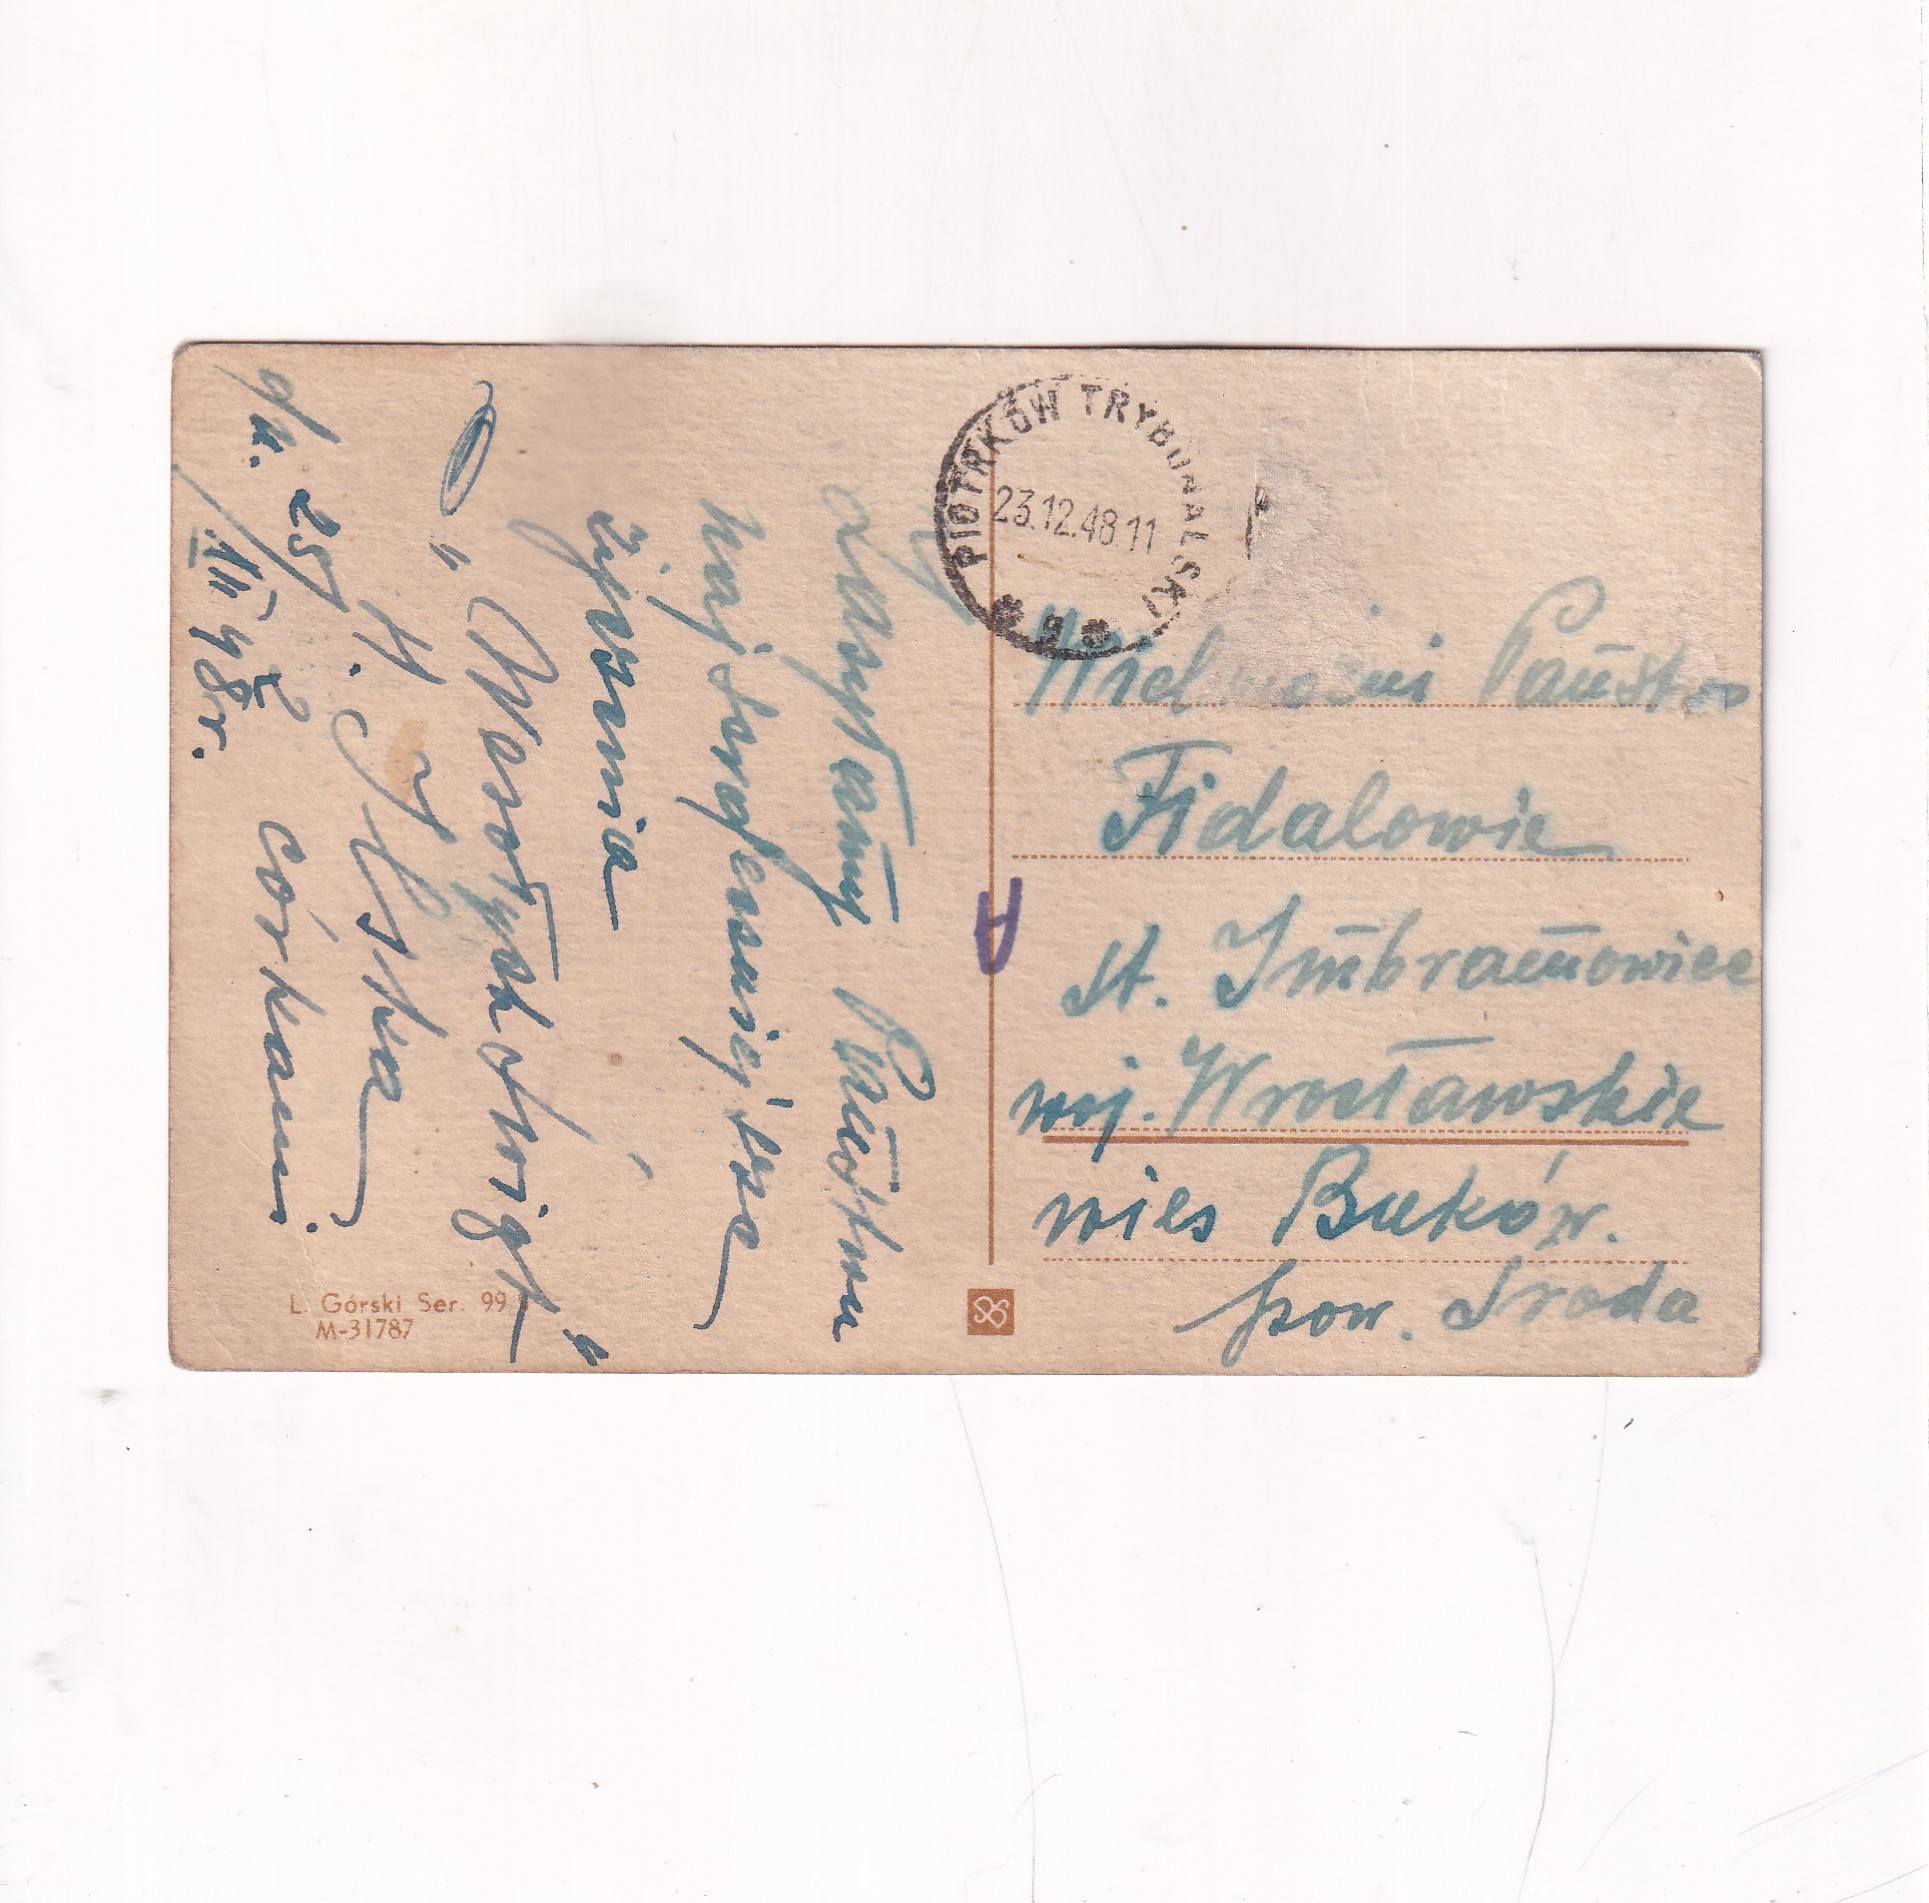 Zasyłamy Państwu
najserdeczniejsze
życzenia
"Wesołych Świąt"
H. J. Ilska
z córkami
dn. 25/XII 48r.
L. Górski Ser. 99
M-31787
PIOTRKÓW TRYBUNALSKI
23.12.48.11
g
A
Wielmożni Państwo
Fidalowie
st. Imbramowice
woj. Wrocławskie
wieś Buków.
pow. Środa